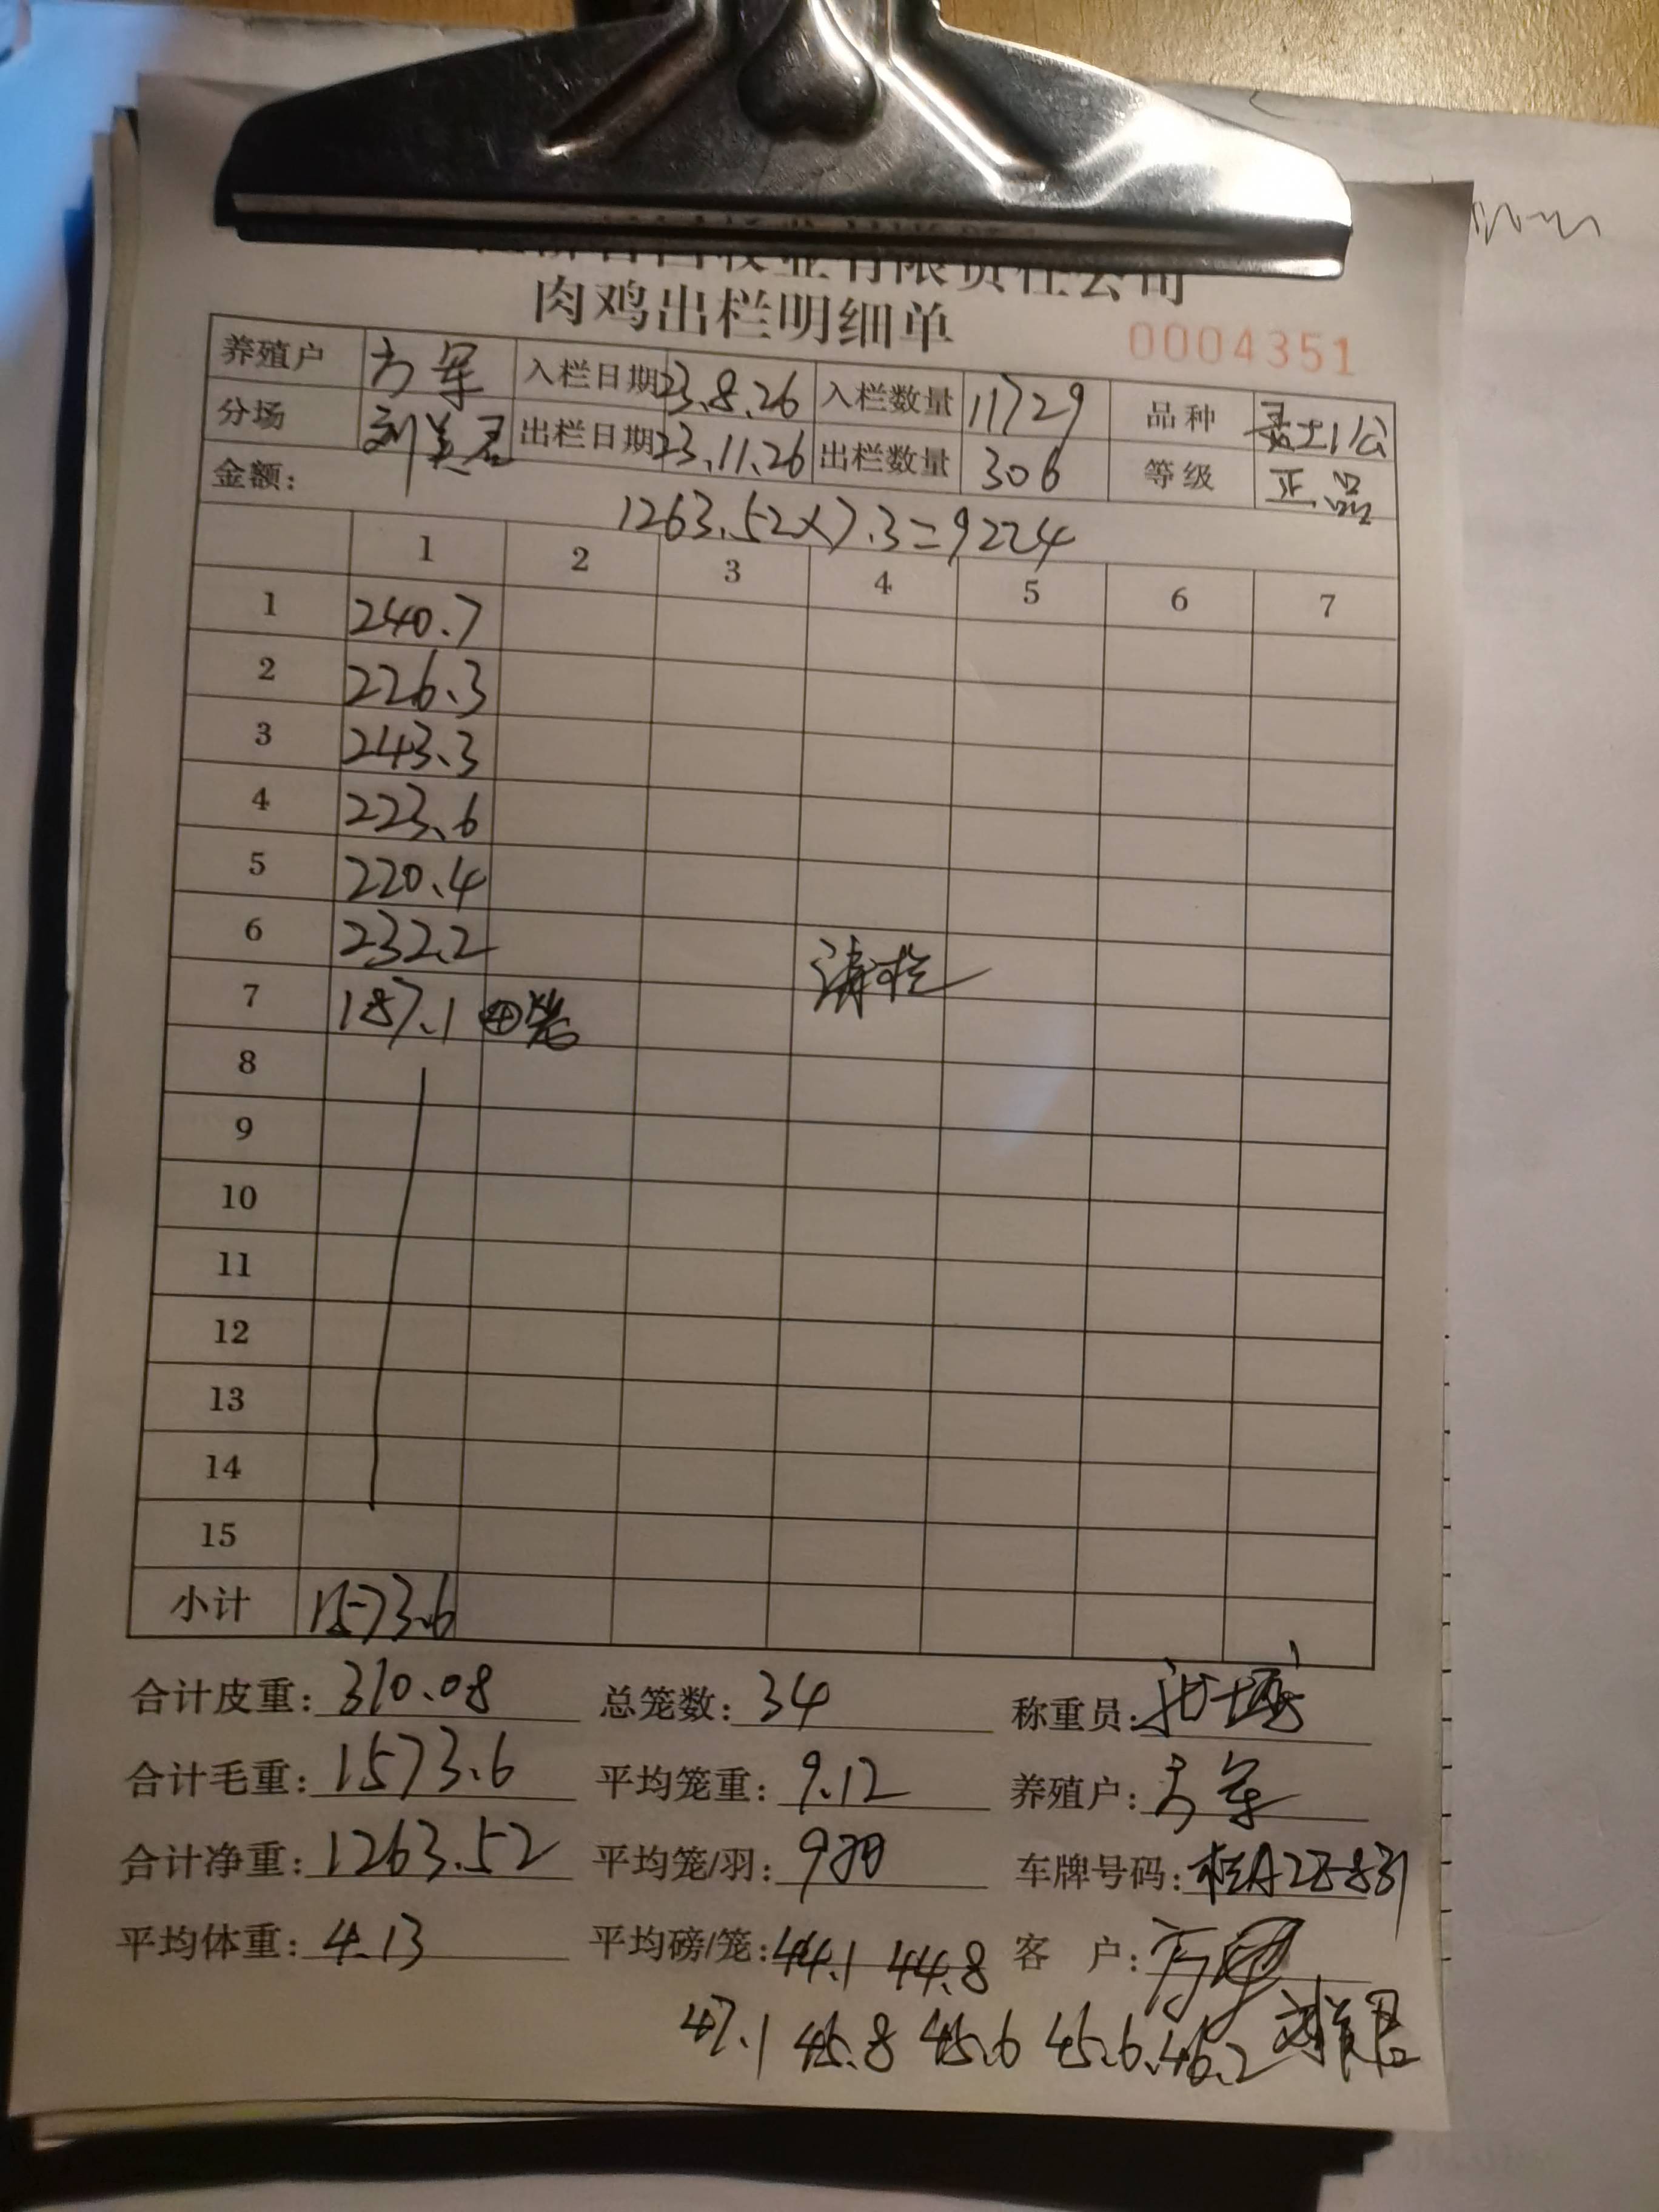 牧业有限责任公司
肉鸡出栏明细单
0004351
养殖户 方军 入栏日期 23.8.26 入栏数量 11729 品种 土1公
分场 刘美君 出栏日期 23.11.26 出栏数量 306 等级 正品
金额: 1263.52×7.3=9224
1 2 3 4 5 6 7
1 240.7
2 226.3
3 243.3
4 223.6
5 220.4
6 232.2 清栏
7 187.1 ④笼
8
9
10
11
12
13
14
15
小计 1573.6
合计皮重: 310.08 总笼数: 34 称重员:
合计毛重: 1573.6 平均笼重: 9.12 养殖户: 方军
合计净重: 1263.52 平均笼/羽: 9 车牌号码: 桂A
平均体重: 4.13 平均磅/笼: 44.1 44.8 客 户:
47.1 45.8 45.6 45.6 46.2 刘美君